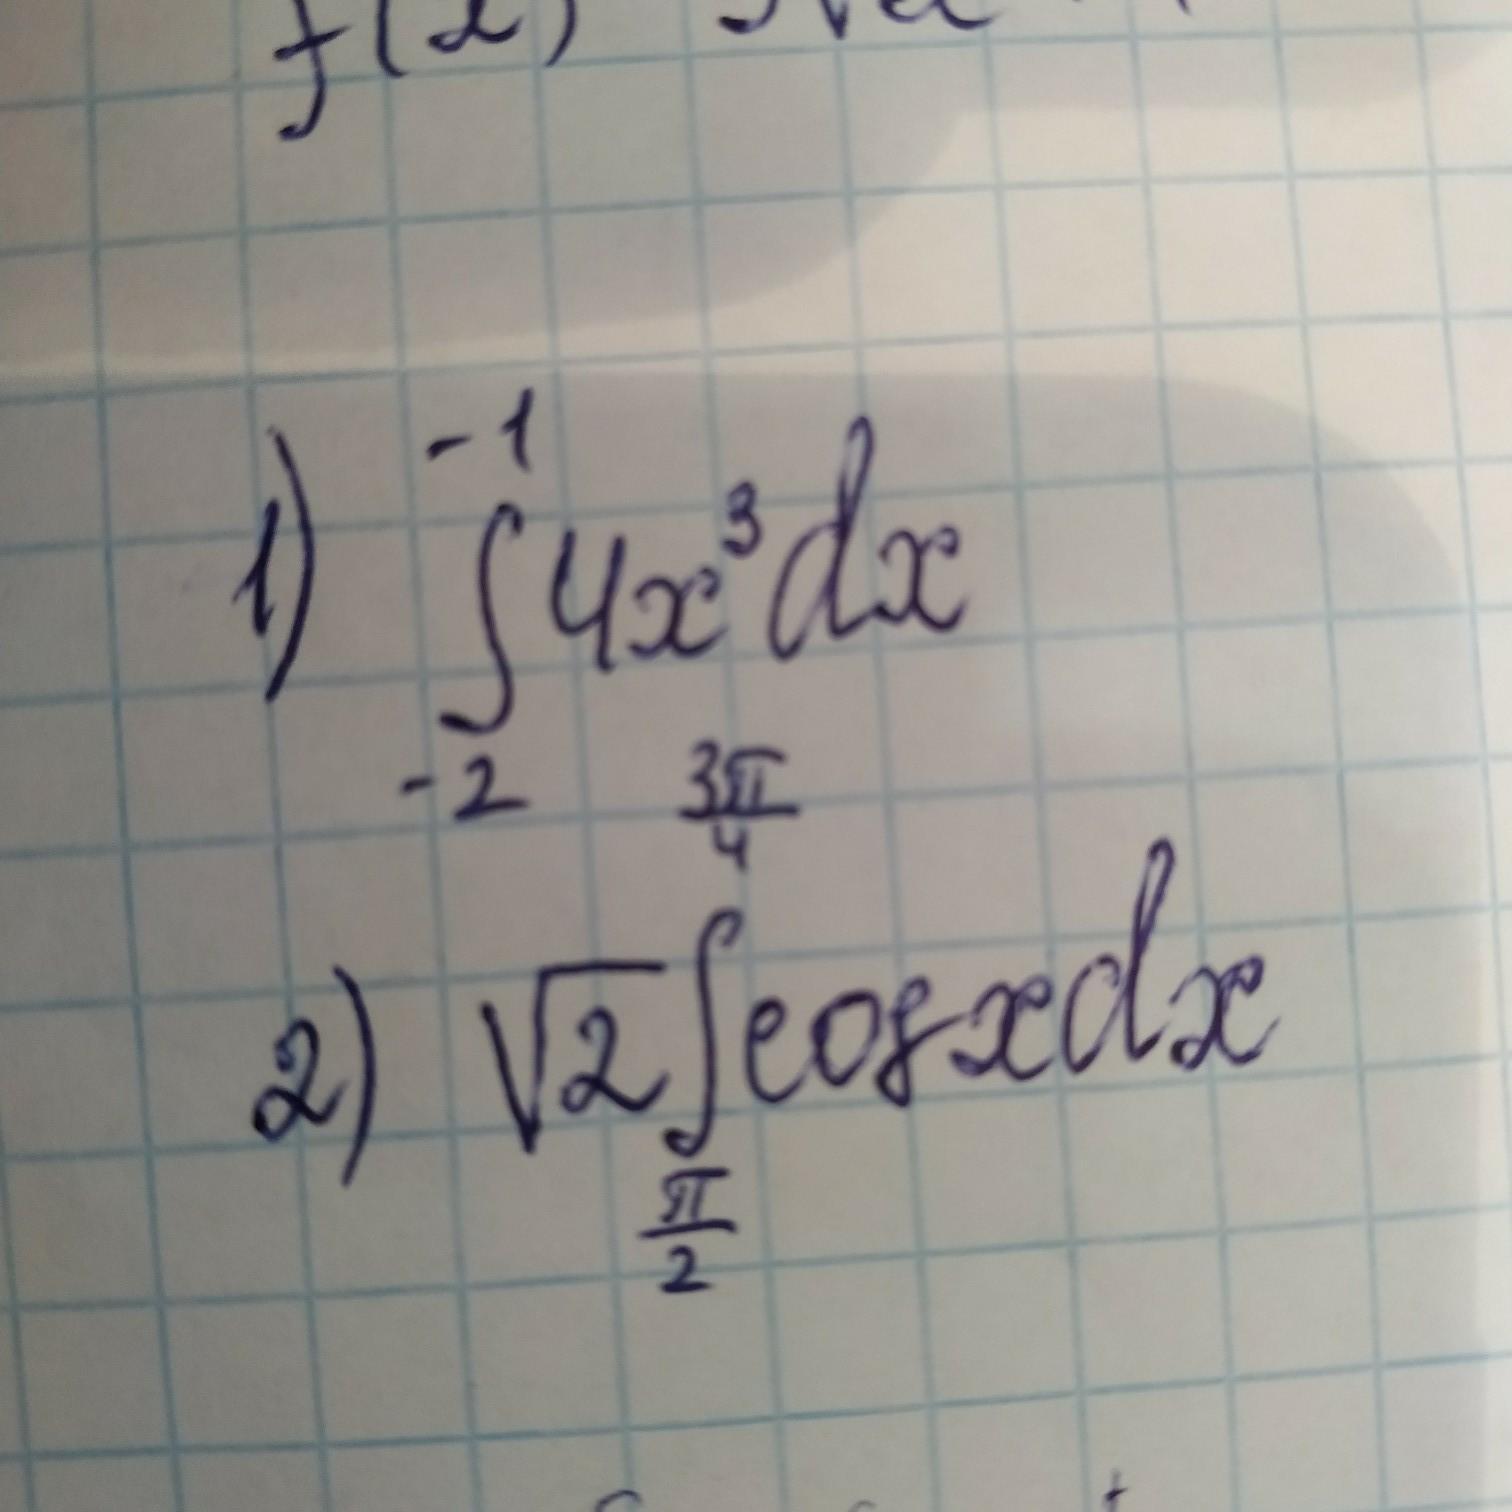 f(x)
1) ∫_{-2}^{-1} 4x³dx
2) √2 ∫_{π/2}^{3π/4} cosxdx